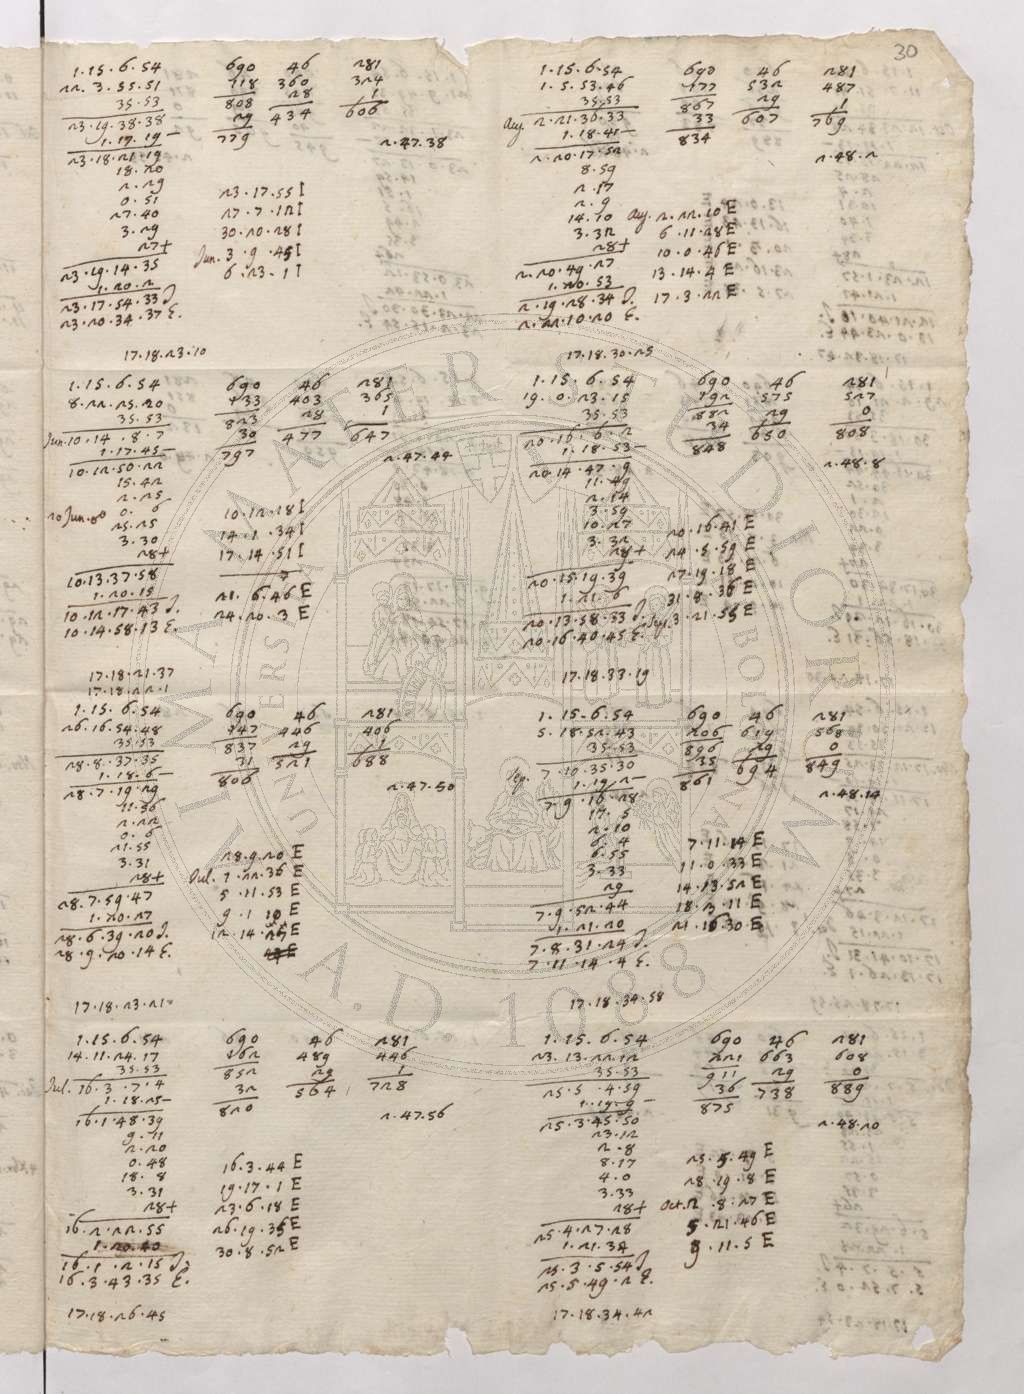 30
1.15.6.54 690 46 281
22.3.55.51 118 360 324
35.53 808 28 1
23.19.38.38 29 434 606
1.17.19 — 779
23.18.21.19 2.47.38
18.20
2.29
0.51 23.17.55 I
27.40 27.7.12 I
3.29 30.20.28 I
27+ Jun. 3.9.45 I
23.19.14.35 6.23.1 I
1.20.2
23.17.54.33 I.
23.20.34.37 E.
17.18.23.10
1.15.6.54 690 46 281
8.22.25.20 133 403 365
35.53 823 28 1
Jun. 10.14.8.7 30 477 647
1.17.45 — 797
10.12.50.22 2.47.44
15.42
2.25
0.6 10.12.18 I
25.25 14.1.34 I
3.30 17.14.51 I
28+
10.13.37.58
1.20.15 21.6.46 E
10.12.17.43 I. 24.20.3 E
10.14.58.13 E.
17.18.21.37
17.18.22.1
1.15.6.54 690 46 281
26.16.54.48 147 446 406
35.53 837 29 1
28.8.37.35 31 521 688
1.18.6 — 806
28.7.19.29 2.47.50
11.56
2.22
0.6
21.55
3.31 28.9.20 E
28+ Jul. 2.22.36 E
28.7.59.47 5.11.53 E
1.20.27 9.1.19 E
28.6.39.20 I. 12.14.26 E
28.9.20.14 E.
17.18.23.21
1.15.6.54 690 46 281
14.11.24.17 162 489 446
35.53 852 29 1
Jul. 16.3.7.4 32 564 728
1.18.25 — 820
16.1.48.39 2.47.56
9.11
2.20
0.48 16.3.44 E
18.8 19.17.1 E
3.31 23.6.18 E
28+ 26.19.35 E
16.2.22.55 30.8.52 E
1.20.40
16.1.2.15 I.
16.3.43.35 E.
17.18.26.45
1.15.6.54 690 46 281
1.5.53.46 177 532 487
35.53 867 29 1
Aug. 2.21.36.33 33 607 769
1.18.41 — 834
2.20.17.52 2.48.2
8.59
2.17
2.9
14.10 Aug. 2.22.10 E
3.32 6.11.28 E
28+ 10.0.46 E
2.20.49.27 13.14.4 E
1.20.53 17.3.22 E
2.19.28.34 I.
2.22.10.20 E.
17.18.30.25
1.15.6.54 690 46 281
19.0.23.15 192 575 527
35.53 882 29 0
20.16.6.2 34 650 808
1.18.53 — 848
20.14.47.9 2.48.8
11.49
2.14
3.59
10.27 20.16.41 E
3.32 24.5.59 E
28+ 27.19.18 E
20.15.19.39 31.8.36 E
1.21.6 3.21.55 E
20.13.58.33 I.
20.16.40.45 E.
17.18.33.19
1.15.6.54 690 46 281
5.18.52.43 206 619 568
35.53 896 29 0
7.10.35.30 35 694 849
1.19.2 — 861
7.9.16.28 2.48.14
17.5
2.10
6.4 7.11.14 E
6.55 11.0.33 E
3.33 14.13.52 E
29 18.3.11 E
7.9.52.44 21.16.30 E
1.21.20
7.8.31.24 I.
7.11.14.4 E.
17.18.34.58
1.15.6.54 690 46 281
23.13.22.12 221 663 608
35.53 911 29 0
25.5.4.59 36 738 889
1.19.9 — 875
25.3.45.50 2.48.20
23.12
2.8
8.17 25.5.49 E
4.0 28.19.8 E
3.33 Oct. 2.8.27 E
28+ 5.21.46 E
25.4.27.28 9.11.5 E
1.21.34
25.3.5.54 I.
25.5.49.2 E.
17.18.34.42
ALMA MATER STUDIORUM
A.D. 1088